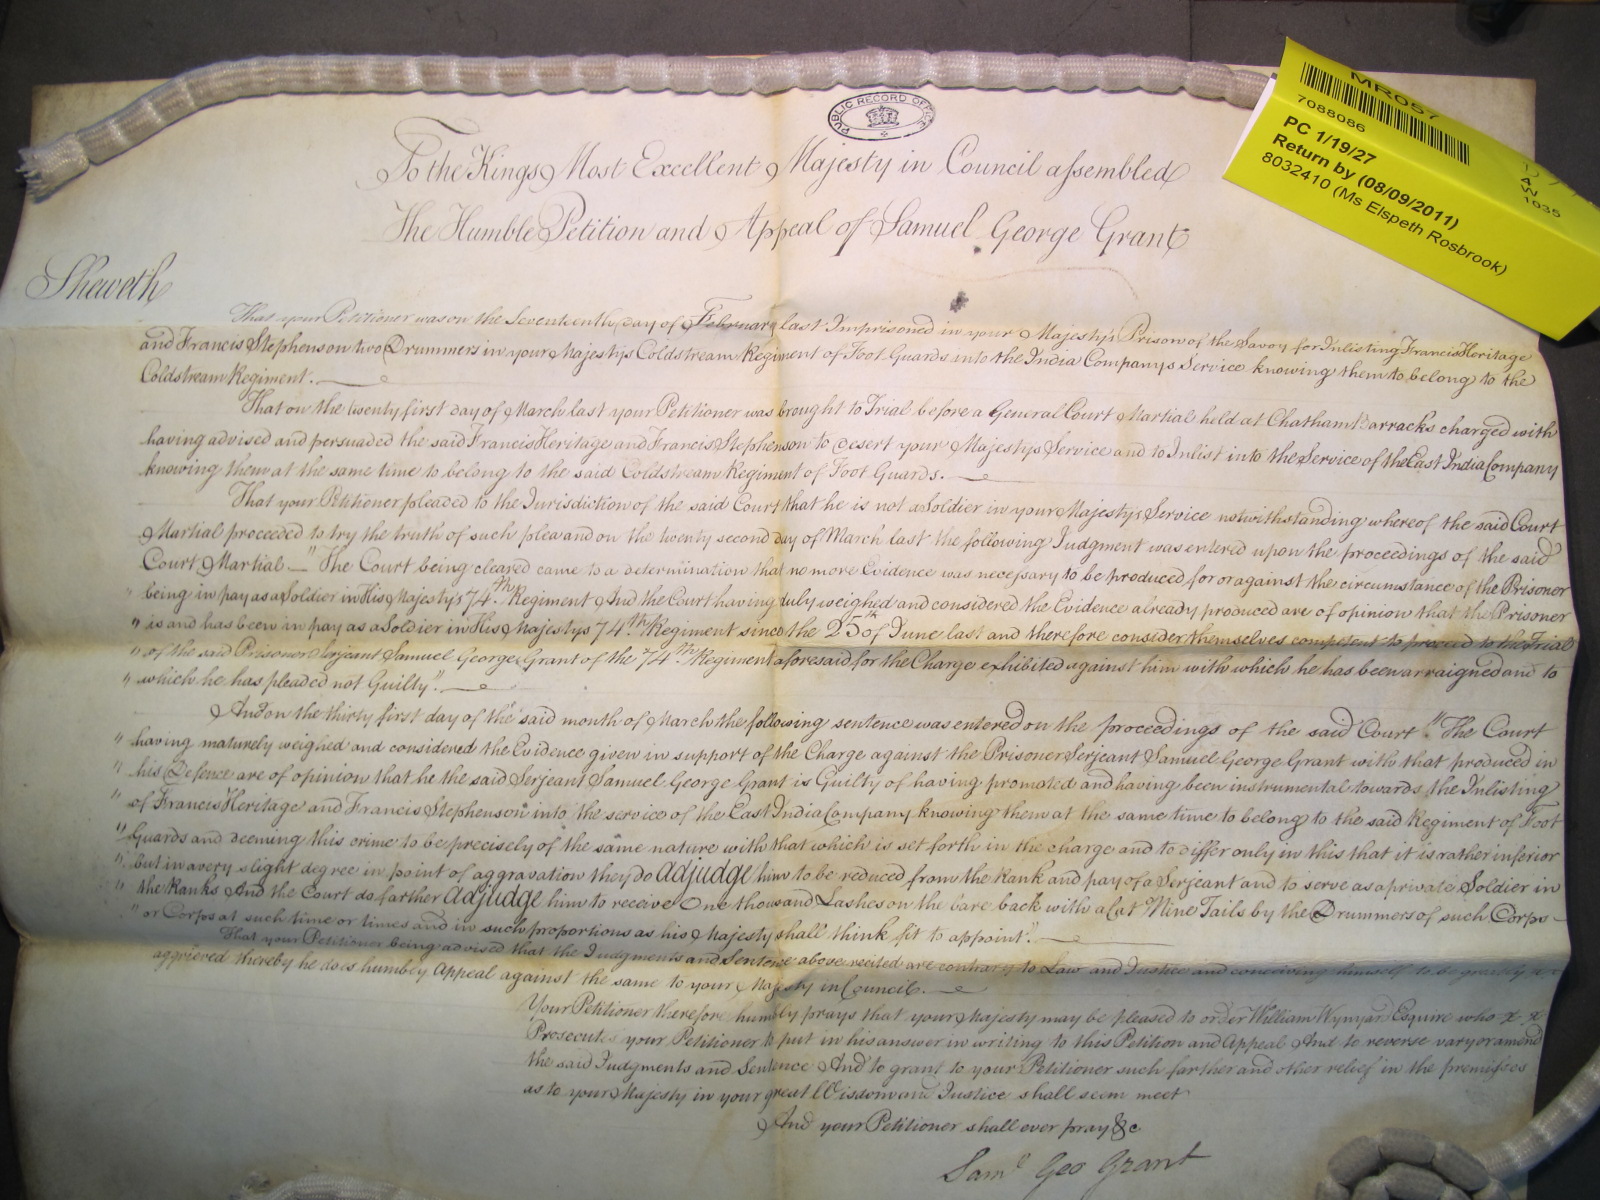 PUBLIC RECORD OFFICE
MR057
7088086
PC 1/19/27
Return by (08/09/2011)
8032410 (Ms Elspeth Rosbrook)
1035
To the Kings Most Excellent Majesty in Council assembled
The Humble Petition and Appeal of Samuel George Grant
Sheweth
That your Petitioner was on the Seventeenth day of February last Imprisoned in your Majestys Prison of the Savoy for Inlisting Francis Heritage
and Francis Stephenson two Drummers in your Majestys Coldstream Regiment of Foot Guards into the India Companys Service knowing them to belong to the
Coldstream Regiment.
That on the twenty first day of March last your Petitioner was brought to Trial before a General Court Martial held at Chatham Barracks charged with
having advised and persuaded the said Francis Heritage and Francis Stephenson to desert your Majestys Service and to Inlist into the Service of the East India Company
knowing them at the same time to belong to the said Coldstream Regiment of Foot Guards.
That your Petitioner pleaded to the Jurisdiction of the said Court that he is not a Soldier in your Majestys Service notwithstanding whereof the said Court
Martial proceeded to try the truth of such plea and on the twenty second day of March last the following Judgment was entered upon the proceedings of the said
Court Martial "The Court being cleared came to a determination that no more Evidence was necessary to be produced for or against the circumstance of the Prisoner
" being in pay as a Soldier in His Majesty's 74th Regiment And the Court having duly weighed and considered the Evidence already produced are of opinion that the Prisoner
" is and has been in pay as a Soldier in His Majestys 74th Regiment since the 25th of June last and therefore consider themselves competent to proceed to the Trial
" of the said Prisoner Serjeant Samuel George Grant of the 74th Regiment aforesaid for the Charge exhibited against him with which he has been arraigned and to
" which he has pleaded not Guilty".
And on the thirty first day of the said month of March the following sentence was entered on the proceedings of the said Court "The Court
" having maturely weighed and considered the Evidence given in support of the Charge against the Prisoner Serjeant Samuel George Grant with that produced in
" his Defence are of opinion that he the said Serjeant Samuel George Grant is Guilty of having promoted and having been instrumental towards the Inlisting
" of Francis Heritage and Francis Stephenson into the service of the East India Company knowing them at the same time to belong to the said Regiment of Foot
" Guards and deeming this crime to be precisely of the same nature with that which is set forth in the charge and to differ only in this that it is rather inferior
" but in a very slight degree in point of aggravation they do adjudge him to be reduced from the Rank and pay of a Serjeant and to serve as a private Soldier in
" the Ranks And the Court do farther adjudge him to receive One thousand Lashes on the bare back with a Cat Nine Tails by the Drummers of such Corps
" or Corps at such time or times and in such proportions as his Majesty shall think fit to appoint".
That your Petitioner being advised that the Judgments and Sentence above recited are contrary to Law and Justice and conceiving himself to be greatly
aggrieved thereby he does humbly Appeal against the same to your Majesty in Council.
Your Petitioner therefore humbly prays that your Majesty may be pleased to order William Wynyard Esquire who
Prosecutes your Petitioner to put in his answer in writing to this Petition and Appeal And to reverse vary or amend
the said Judgments and Sentence And to grant to your Petitioner such farther and other relief in the premisses
as to your Majesty in your great Wisdom and Justice shall seem meet
And your Petitioner shall ever pray &c
Saml Geo Grant